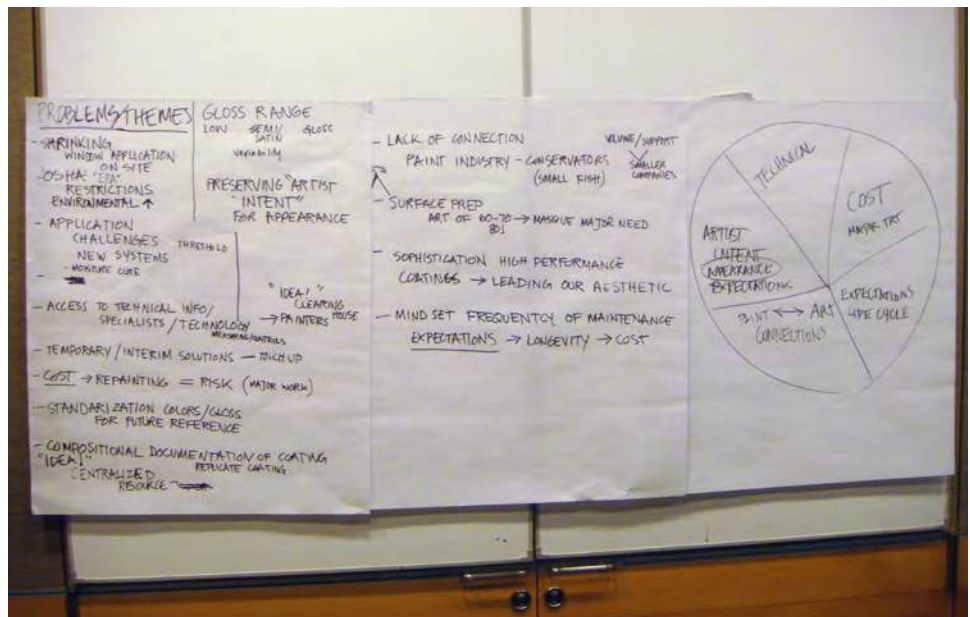 PROBLEMS/THEMES
- SHRINKING
WINDOW APPLICATION
ON SITE
- OSHA "EPA"
RESTRICTIONS
ENVIRONMENTAL ↑
- APPLICATION
CHALLENGES
NEW SYSTEMS
- MOISTURE CURE
-
- ACCESS TO TECHNICAL INFO/
SPECIALISTS/TECHNOLOGY
MEASURING/CONTROLS
- TEMPORARY/INTERIM SOLUTIONS — TOUCH UP
- COST → REPAINTING = RISK (MAJOR WORK)
- STANDARIZATION COLORS/GLOSS
FOR FUTURE REFERENCE
- COMPOSITIONAL DOCUMENTATION OF COATING
"IDEA!" REPLICATE COATING
CENTRALIZED
RESOURCE
GLOSS RANGE
LOW SEMI/ GLOSS
SATIN
variability
PRESERVING "ARTIST
"INTENT"
FOR APPEARANCE
THRESHOLD
"IDEA!"
CLEARING
→ PAINTERS HOUSE
- LACK OF CONNECTION
PAINT INDUSTRY - CONSERVATORS
(SMALL FISH)
VOLUME/SUPPORT
SMALLER
COMPANIES
- SURFACE PREP
ART OF 60-70 → MASSIVE MAJOR NEED
80s
- SOPHISTICATION HIGH PERFORMANCE
COATINGS → LEADING OUR AESTHETIC
- MIND SET FREQUENTCY OF MAINTENANCE
EXPECTATIONS → LONGEVITY → COST
TECHNICAL
COST
MAJOR TRT
ARTIST
INTENT
APPEARANCE
EXPECTATIONS
EXPECTATIONS
LIFE CYCLE
PAINT ↔ ART
CONNECTIONS